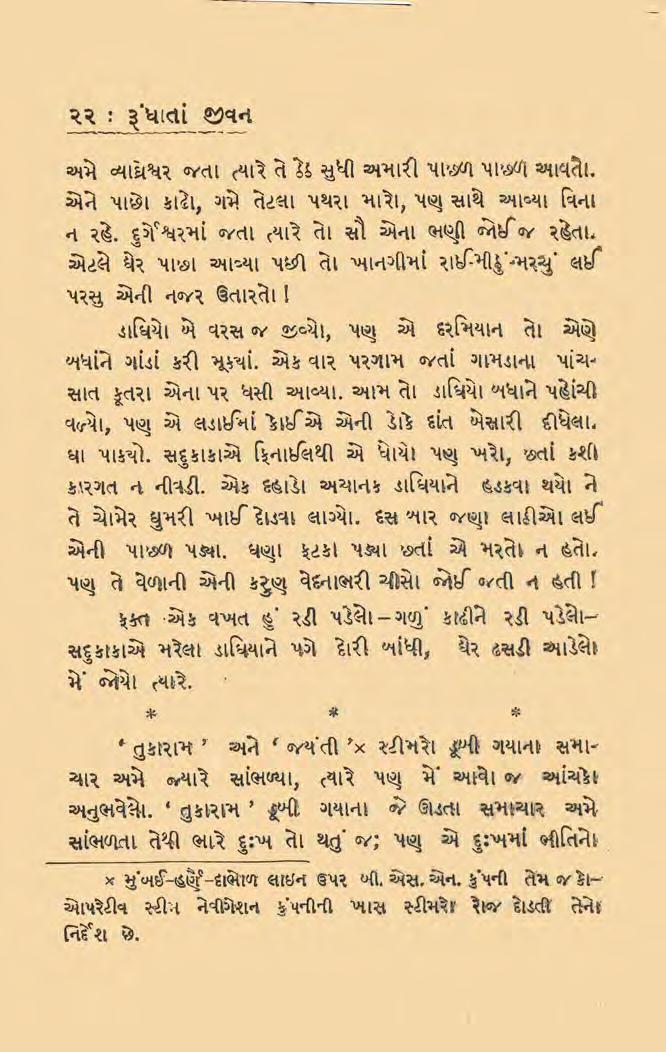 ૨૨ : રૂંધાતાં જીવન
અમે વ્યાઘ્રેશ્વર જતા ત્યારે તે ઠેઠ સુધી અમારી પાછળ પાછળ આવતો.
એને પાછો કાઢો, ગમે તેટલા પથરા મારો, પણ સાથે આવ્યા વિના
ન રહે. દુર્ગેશ્વરમાં જતા ત્યારે તો સૌ એના ભણી જોઈ જ રહેતા.
એટલે ઘેર પાછા આવ્યા પછી તો ખાનગીમાં રાઈ-મીઠું-મરચું લઈ
પરસુ એની નજર ઉતારતો !
ડાઘિયો બે વરસ જ જીવ્યો, પણ એ દરમિયાન તો એણે
બધાંને ગાંડાં કરી મૂક્યાં. એક વાર પરગામ જતાં ગામડાના પાંચ-
સાત કૂતરા એના પર ધસી આવ્યા. આમ તો ડાઘિયો બધાને પહોંચી
વળ્યો, પણ એ લડાઈમાં કોઈએ એની ડોકે દાંત બેસારી દીધેલા.
ઘા પાક્યો. સદુકાકાએ ફિનાઈલથી એ ધોયો પણ ખરો, છતાં કશી
કારગત ન નીવડી. એક દહાડો અચાનક ડાઘિયાને હડકવા થયો ને
તે ચોમેર ઘુમરી ખાઈ દોડવા લાગ્યો. દસ બાર જણા લાઠીઓ લઈ
એની પાછળ પડ્યા. ઘણા ફટકા પડ્યા છતાં એ મરતો ન હતો.
પણ તે વેળાની એની કરુણ વેદનાભરી ચીસો જોઈ જતી ન હતી !
ફક્ત એક વખત હું રડી પડેલો – ગળું કાઢીને રડી પડેલો–
સદુકાકાએ મરેલા ડાઘિયાને પગે દોરી બાંધી, ઘેર ઢસડી આડેલો
મેં જોયો ત્યારે.
* * *
‘ તુકારામ ’ અને ‘ જયંતી ’× સ્ટીમરો ડૂબી ગયાના સમા-
ચાર અમે જ્યારે સાંભળ્યા, ત્યારે પણ મેં આવો જ આંચકો
અનુભવેલો. ‘ તુકારામ ’ ડૂબી ગયાના જે ઊડતા સમાચાર અમે
સાંભળતા તેથી ભારે દુઃખ તો થતું જ; પણ એ દુઃખમાં ભીતિનો
× મુંબઈ-હર્ણૈ-દાભોળ લાઇન ઉપર બી. એસ. એન. કુંપની તેમ જ કો-
ઓપરેટીવ સ્ટીમ નેવીગેશન કુંપનીની ખાસ સ્ટીમરો રોજ દોડતી તેનો
નિર્દેશ છે.